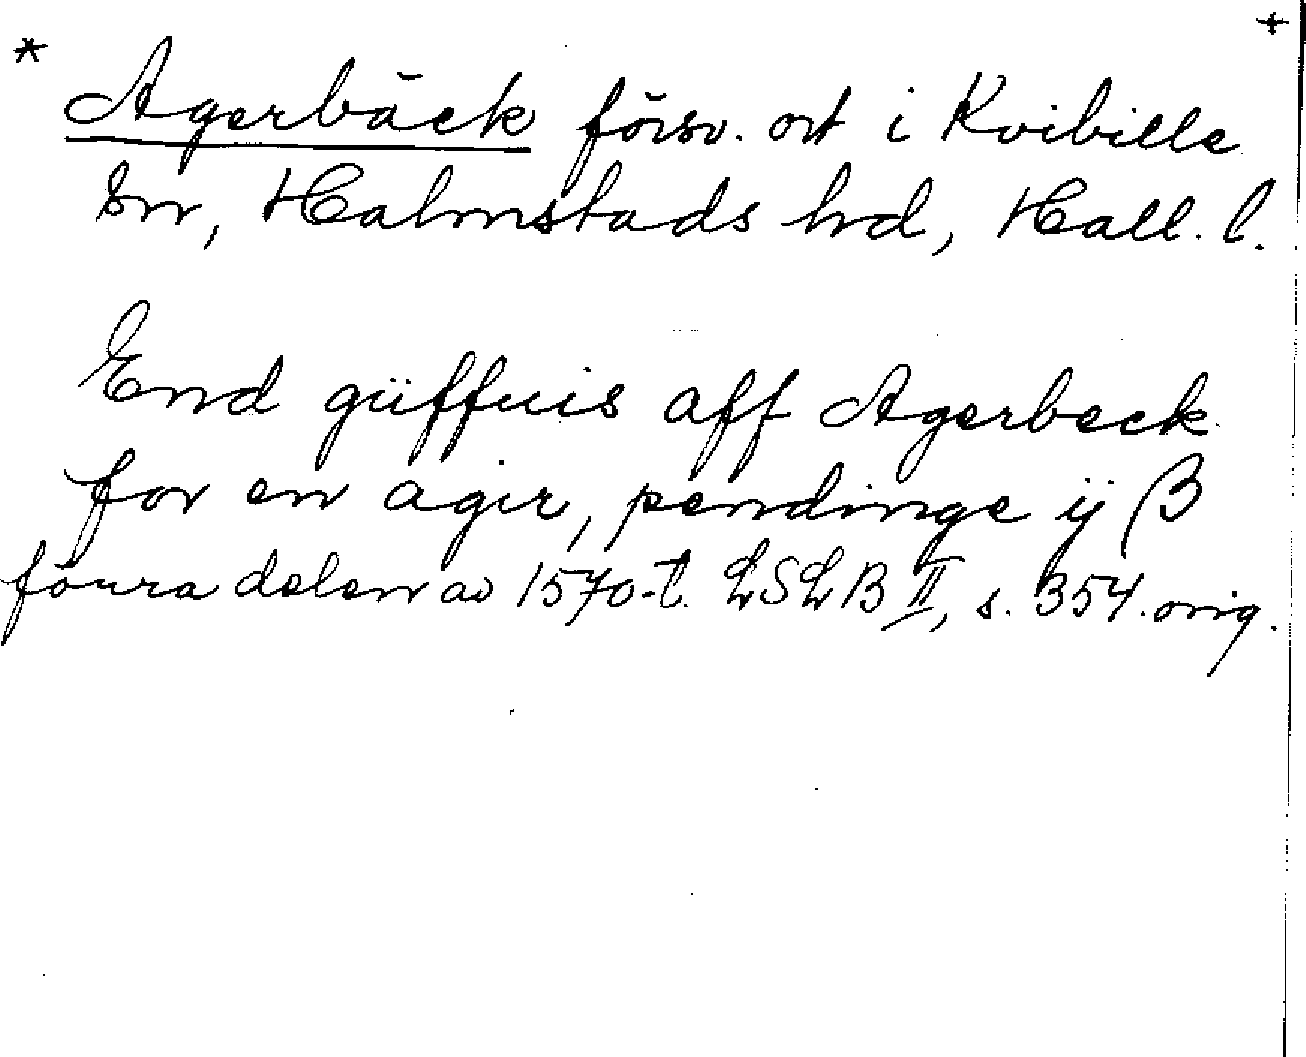 * +
Agerbäck försv. ort i Kvibille
sn, Halmstads hd, Hall. l.
End güffuis aff Agerbeck
for en agir, pendinge ij β
förra delen av 1570-t. LSLB II, s. 354. orig.